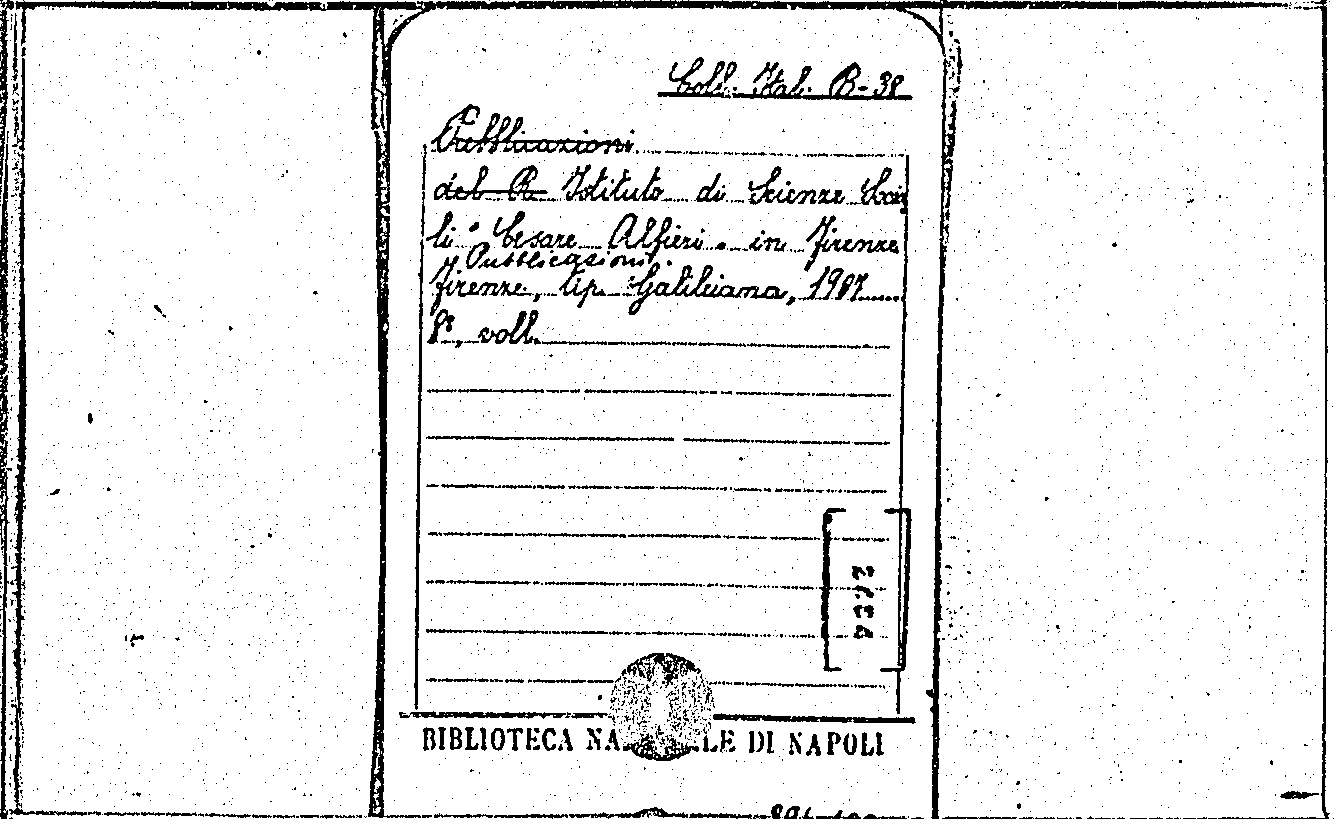 Coll. Ital. B-38
Pubblicazioni
del R. Istituto di Scienze Socia
li "Cesare Alfieri" in Firenze
Pubblicazioni.
Firenze, tip. Galileiana, 1907
8°, voll.
BIBLIOTECA NAZIONALE DI NAPOLI